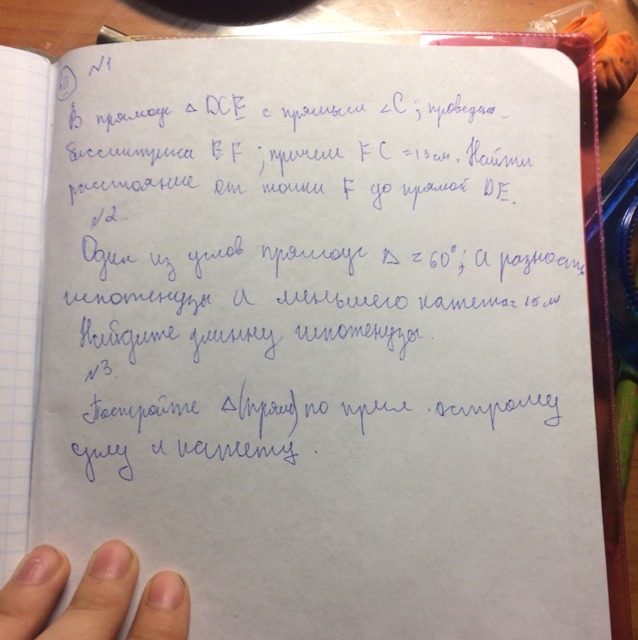 №1
В прямоуг △ DCE с прямым ∠C; проведена
биссектриса EF; причем FC = 13 см. Найти
расстояние от точки F до прямой DE.
№2.
Один из углов прямоуг △ = 60°; а разность
гипотенузы и меньшего катета = 15 см
Найдите длинну гипотенузы.
№3.
Постройте △(прям) по прил. острому
углу и катету.